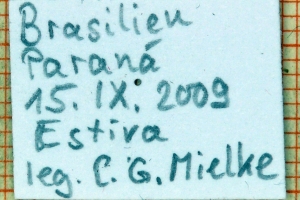 Brasilien
Paraná
15. IX. 2009
Estiva
leg. C. G. Mielke